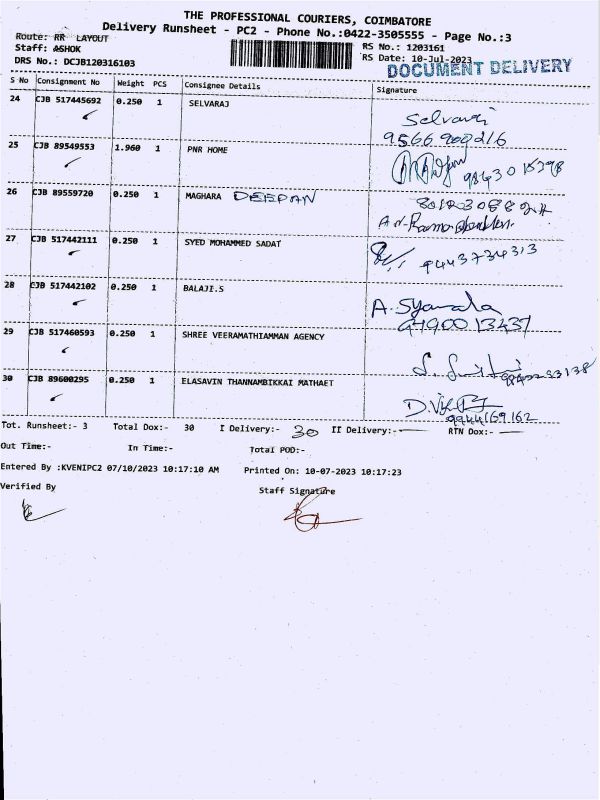 THE PROFESSIONAL COURIERS, COIMBATORE
Delivery Runsheet - PC2 - Phone No.:0422-3505555 - Page No.:3
Route: RR LAYOUT RS No.: 1203161
Staff: ASHOK RS Date: 10-Jul-2023
DRS No.: DCJB120316103 DOCUMENT DELIVERY
S No Consignment No Weight PCS Consignee Details Signature
24 CJB 517445692 0.250 1 SELVARAJ Selvaraj
9566900216
25 CJB 89549553 1.960 1 PNR HOME
9843015398
26 CJB 89559720 0.250 1 MAGHARA DEEPAN
27 CJB 517442111 0.250 1 SYED MOHAMMED SADAT
9443734313
28 CJB 517442102 0.250 1 BALAJI.S A. Syamala
9490013437
29 CJB 517460593 0.250 1 SHREE VEERAMATHIAMMAN AGENCY
30 CJB 89600295 0.250 1 ELASAVIN THANNAMBIKKAI MATHAET
9944159162
Tot. Runsheet:- 3 Total Dox:- 30 I Delivery:- 30 II Delivery:- RTN Dox:-
Out Time:- In Time:- Total POD:-
Entered By :KVENIPC2 07/10/2023 10:17:10 AM Printed On: 10-07-2023 10:17:23
Verified By Staff Signature